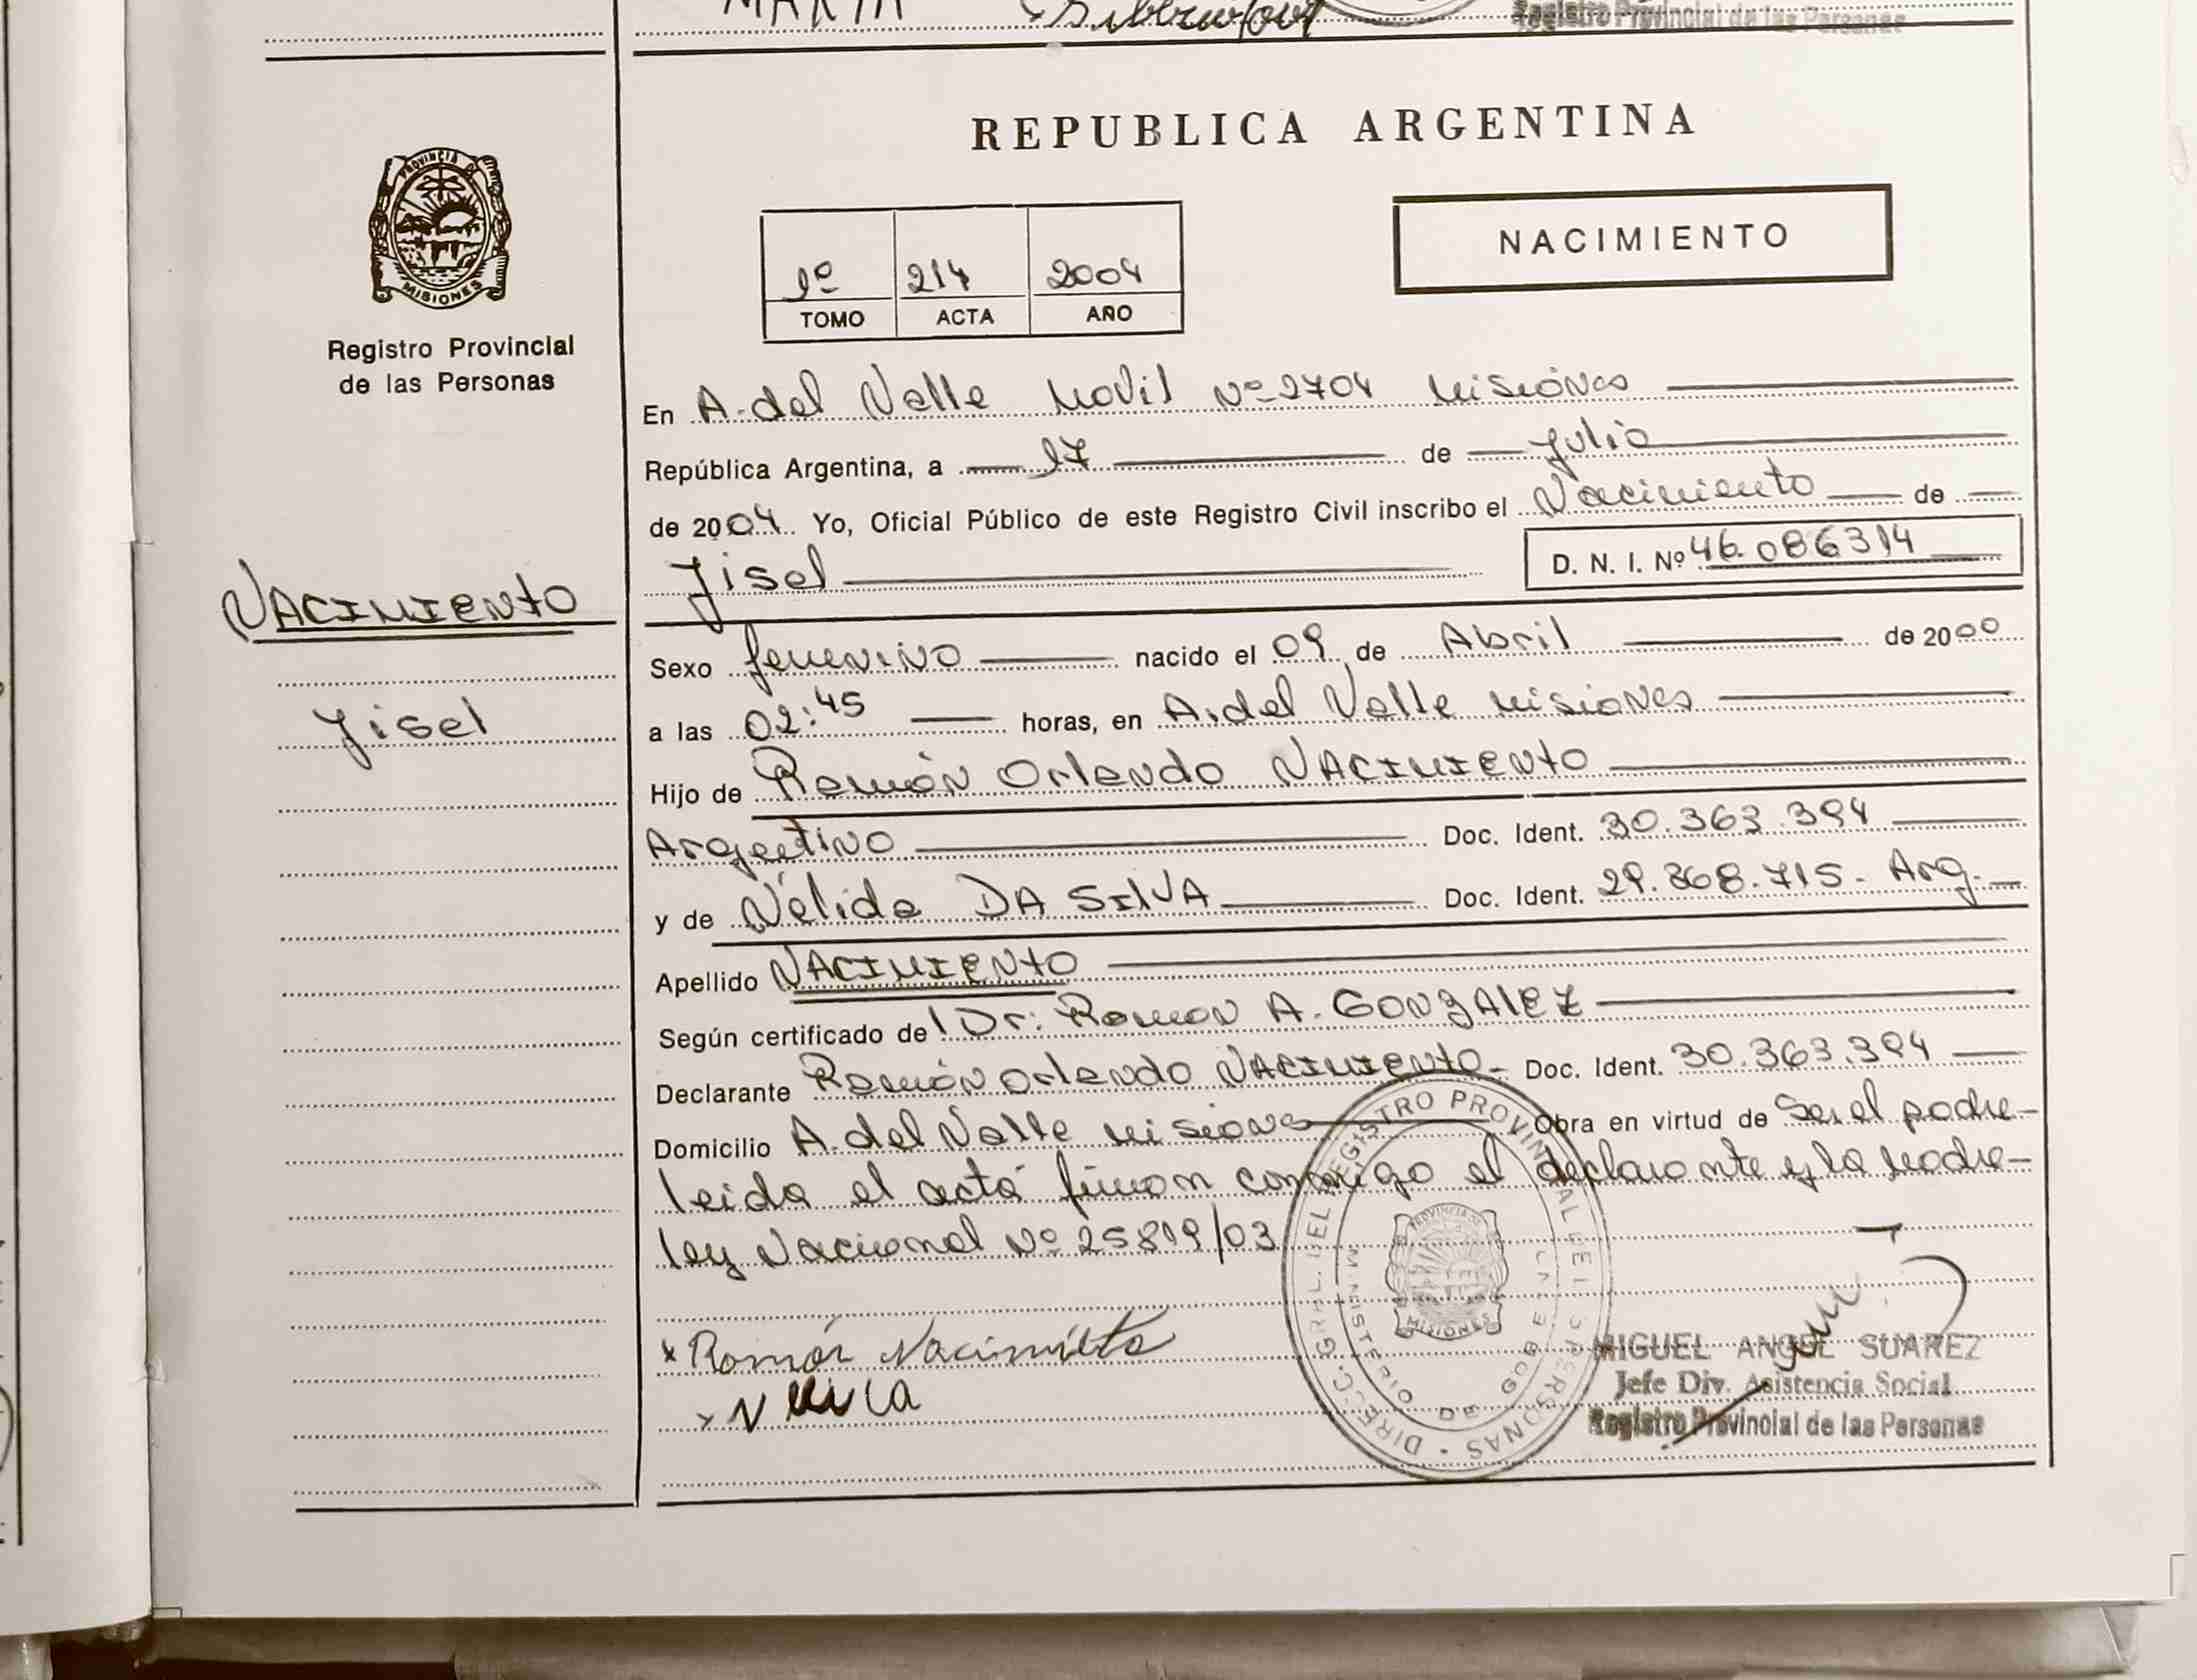 MARIA
Registro Provincial de las Personas
REPUBLICA ARGENTINA
PROVINCIA DE
MISIONES
Registro Provincial
de las Personas
NACIMIENTO
1º 214 2004
TOMO ACTA AÑO
En A. del Valle Movil Nº 2704 Misiónes
República Argentina, a 17 de Julio
de 2004 Yo, Oficial Público de este Registro Civil inscribo el Nacimiento de
Jisel
D. N. I. Nº 46.086314
NACIMIENTO
Jisel
Sexo femenino nacido el 09 de Abril de 2000
a las 02:45 horas, en A. del Valle Misiones
Hijo de Ramón Orlando NACIMIENTO
Argetino Doc. Ident. 30.363.394
y de Nélida DA SILVA Doc. Ident. 29.368.715- Arg.
Apellido NACIMIENTO
Según certificado del Dr: Ramon A. GONZALEZ
Declarante Ramón Orlando NACIMIENTO- Doc. Ident. 30.363.394
Domicilio A. del Valle Misiones Obra en virtud de Ser el padre-
leida el acta firman conmigo el declarante y la Madre-
ley Nacional Nº 25819/03
x Ramón Nacimiento
DIRECC. GRAL. DEL REGISTRO PROVINCIAL DE LAS PERSONAS
MINISTERIO DE GOBIERNO
PROVINCIA DE
MISIONES
MIGUEL ANGEL SUAREZ
Jefe Div. Asistencia Social
Registro Provincial de las Personas